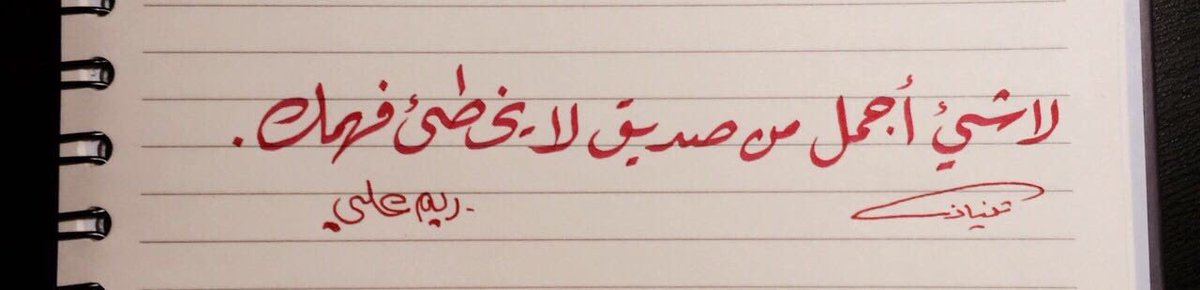 لا شيئ أجمل من صديق لا يخطئ فهمك .
ريم علي